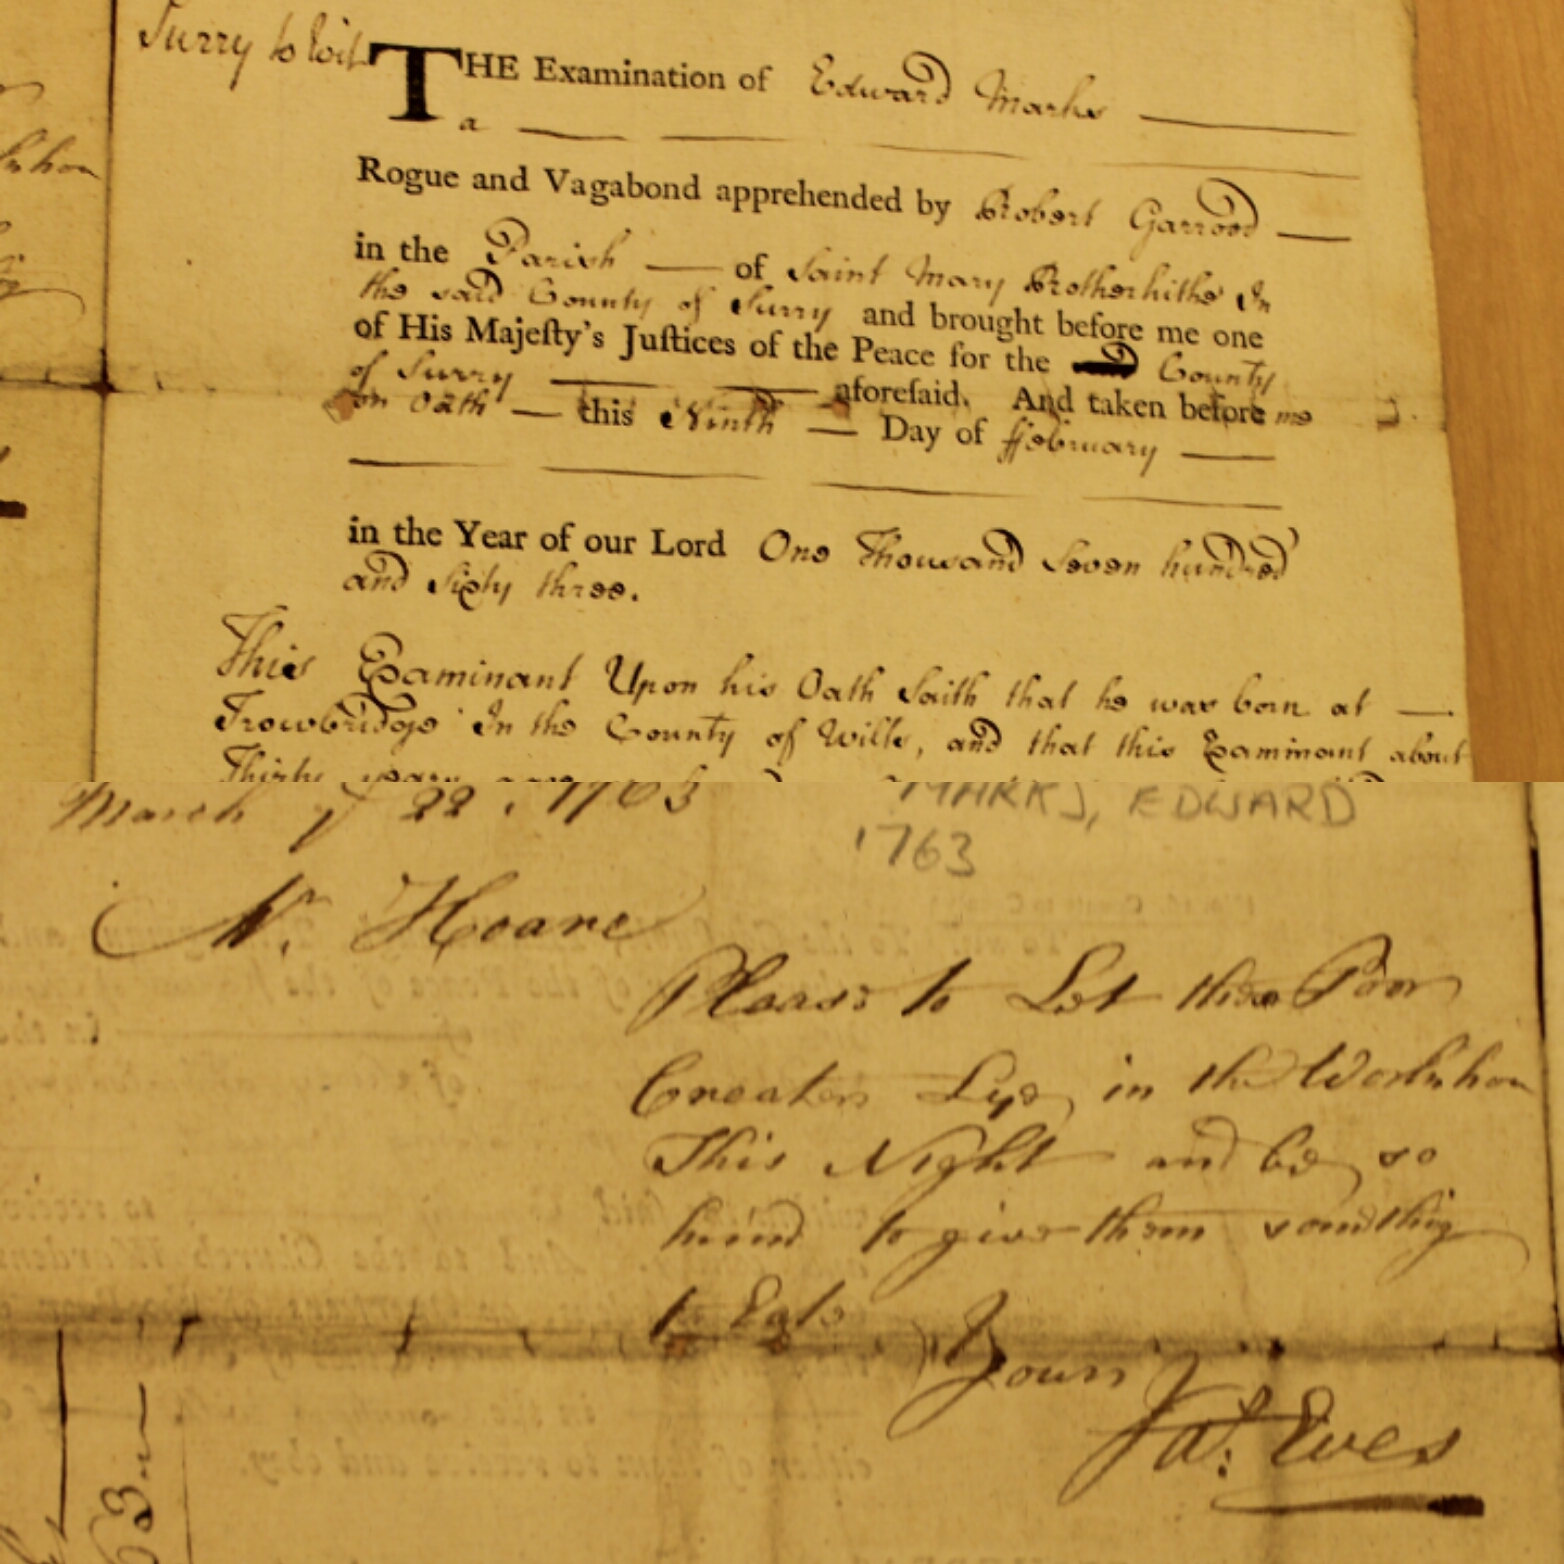 Surry to Wit
THE Examination of Edward Marks
a
Rogue and Vagabond apprehended by Robert Garrood
in the Parish of Saint Mary Rotherhithe In
the said County of Surry and brought before me one
of His Majeſty's Juſtices of the Peace for the County
of Surry aforeſaid. And taken before me
on Oath this Ninth Day of ffebruary
in the Year of our Lord One Thousand Seven hundred
and Sixty three.
This Examinant Upon his Oath Saith that he was born at
Trowbridge In the County of Wilts, and that this Examinant about
Thirty years
March ye 22, 1763
MARKS, EDWARD
1763
Mr. Hoare
Please to Let these Poor
Creaters Lye in the Workhou
This Night and be so
kind to give them something
to Eate
Yours
Jas. Eves